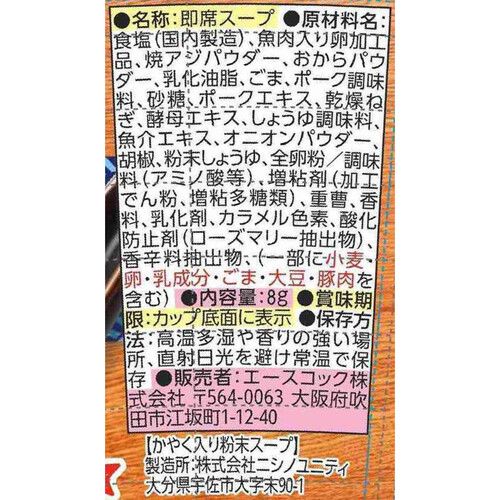 ●名称:即席スープ ●原材料名:
食塩(国内製造)、魚肉入り卵加工
品、焼アジパウダー、おからパウ
ダー、乳化油脂、ごま、ポーク調味
料、砂糖、ポークエキス、乾燥ね
ぎ、酵母エキス、しょうゆ調味料、
魚介エキス、オニオンパウダー、
胡椒、粉末しょうゆ、全卵粉/調味
料(アミノ酸等)、増粘剤(加工
でん粉、増粘多糖類)、重曹、香
料、乳化剤、カラメル色素、酸化
防止剤(ローズマリー抽出物)、
香辛料抽出物、(一部に小麦・
卵・乳成分・ごま・大豆・豚肉を
含む) ●内容量:8g ●賞味期
限:カップ底面に表示 ●保存方
法:高温多湿や香りの強い場
所、直射日光を避け常温で保
存 ●販売者:エースコック株
式会社 〒564-0063 大阪府吹
田市江坂町1-12-40
【かやく入り粉末スープ】
製造所:株式会社ニシノユニティ
大分県宇佐市大字末90-1